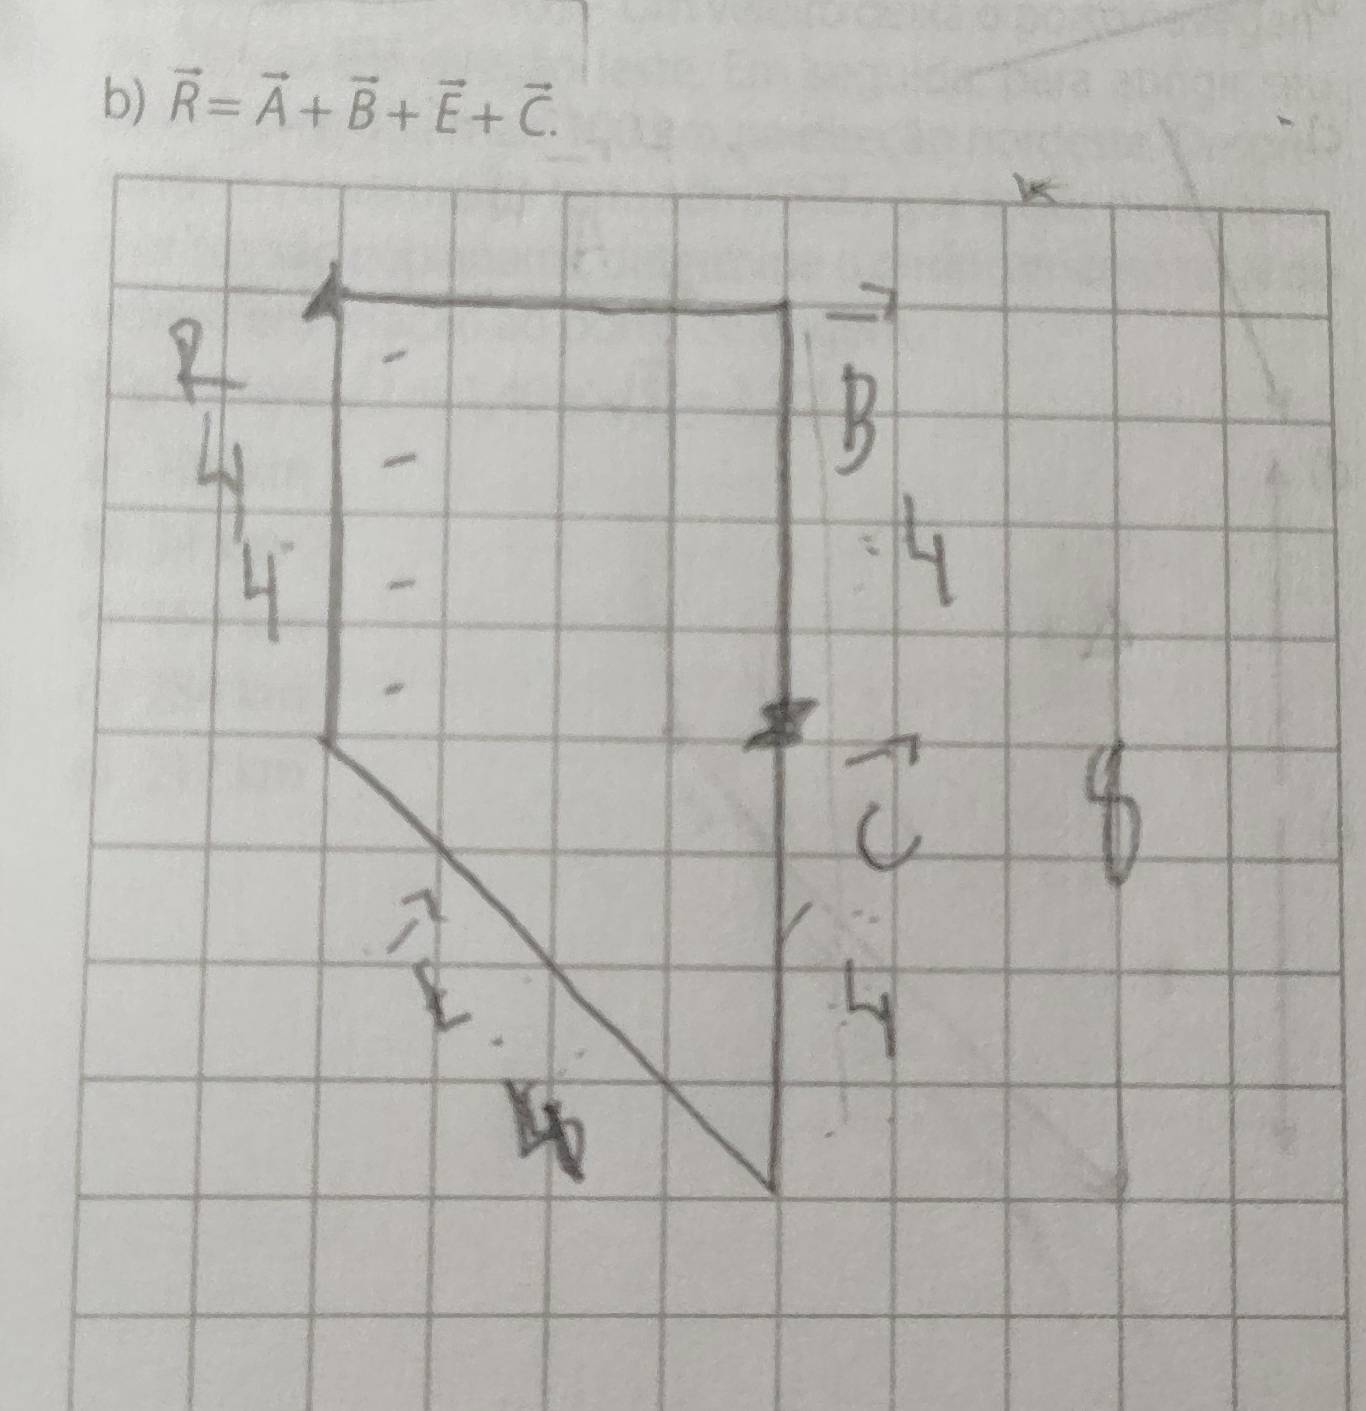 b) R⃗ = A⃗ + B⃗ + E⃗ + C⃗.
R
B
4
4
4
C
8
E
4